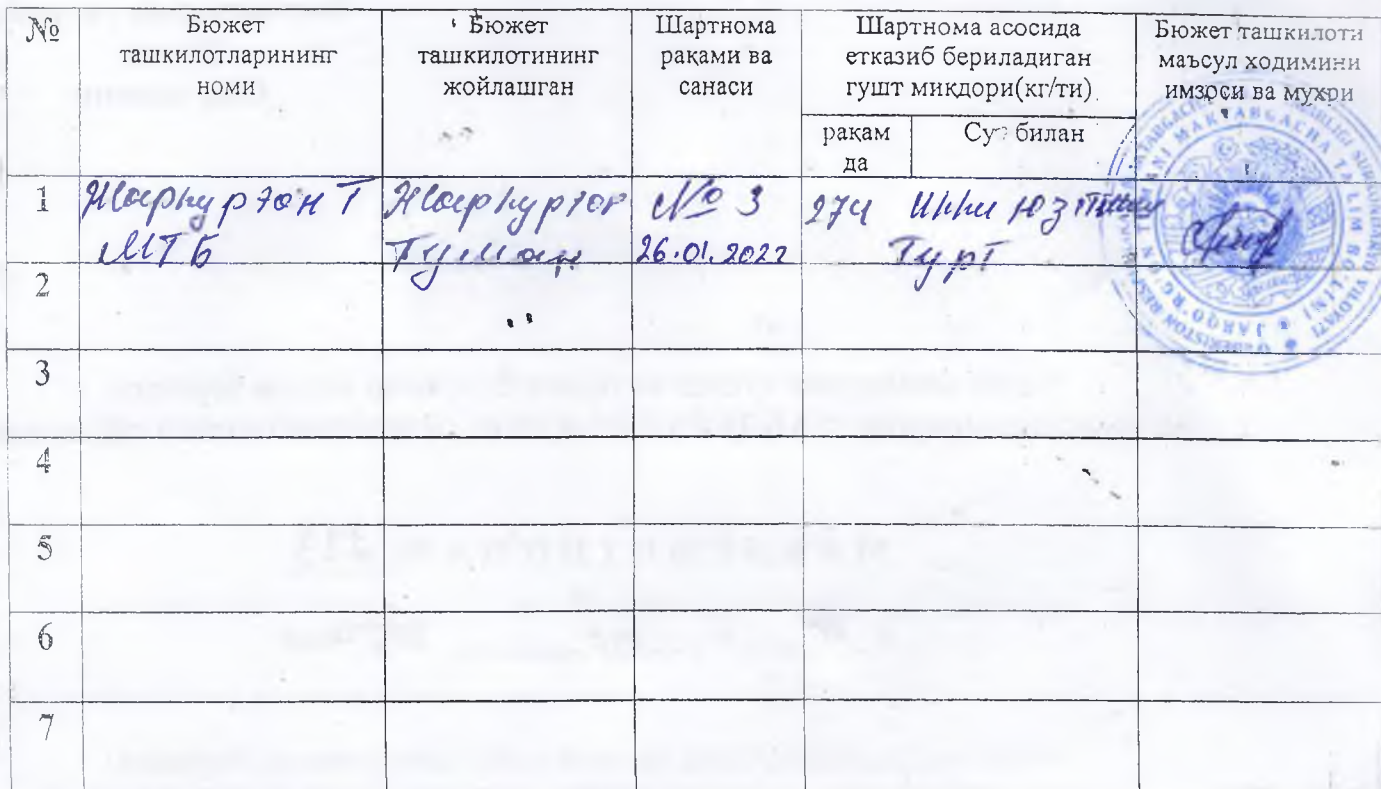 №
Бюжет
ташкилотларининг
номи
Бюжет
ташкилотининг
жойлашган
Шартнома
рақами ва
санаси
Шартнома асосида
етказиб бериладиган
гушт микдори(кг/ти)
рақам
да
Суз билан
Бюжет ташкилоти
маъсул ходимини
имзоси ва мухри
1
Жарқурғон Т
МТБ
Жарқурғон
Туман
№ 3
26.01.2022
274
Икки юз
Турт
2
3
4
5
6
7